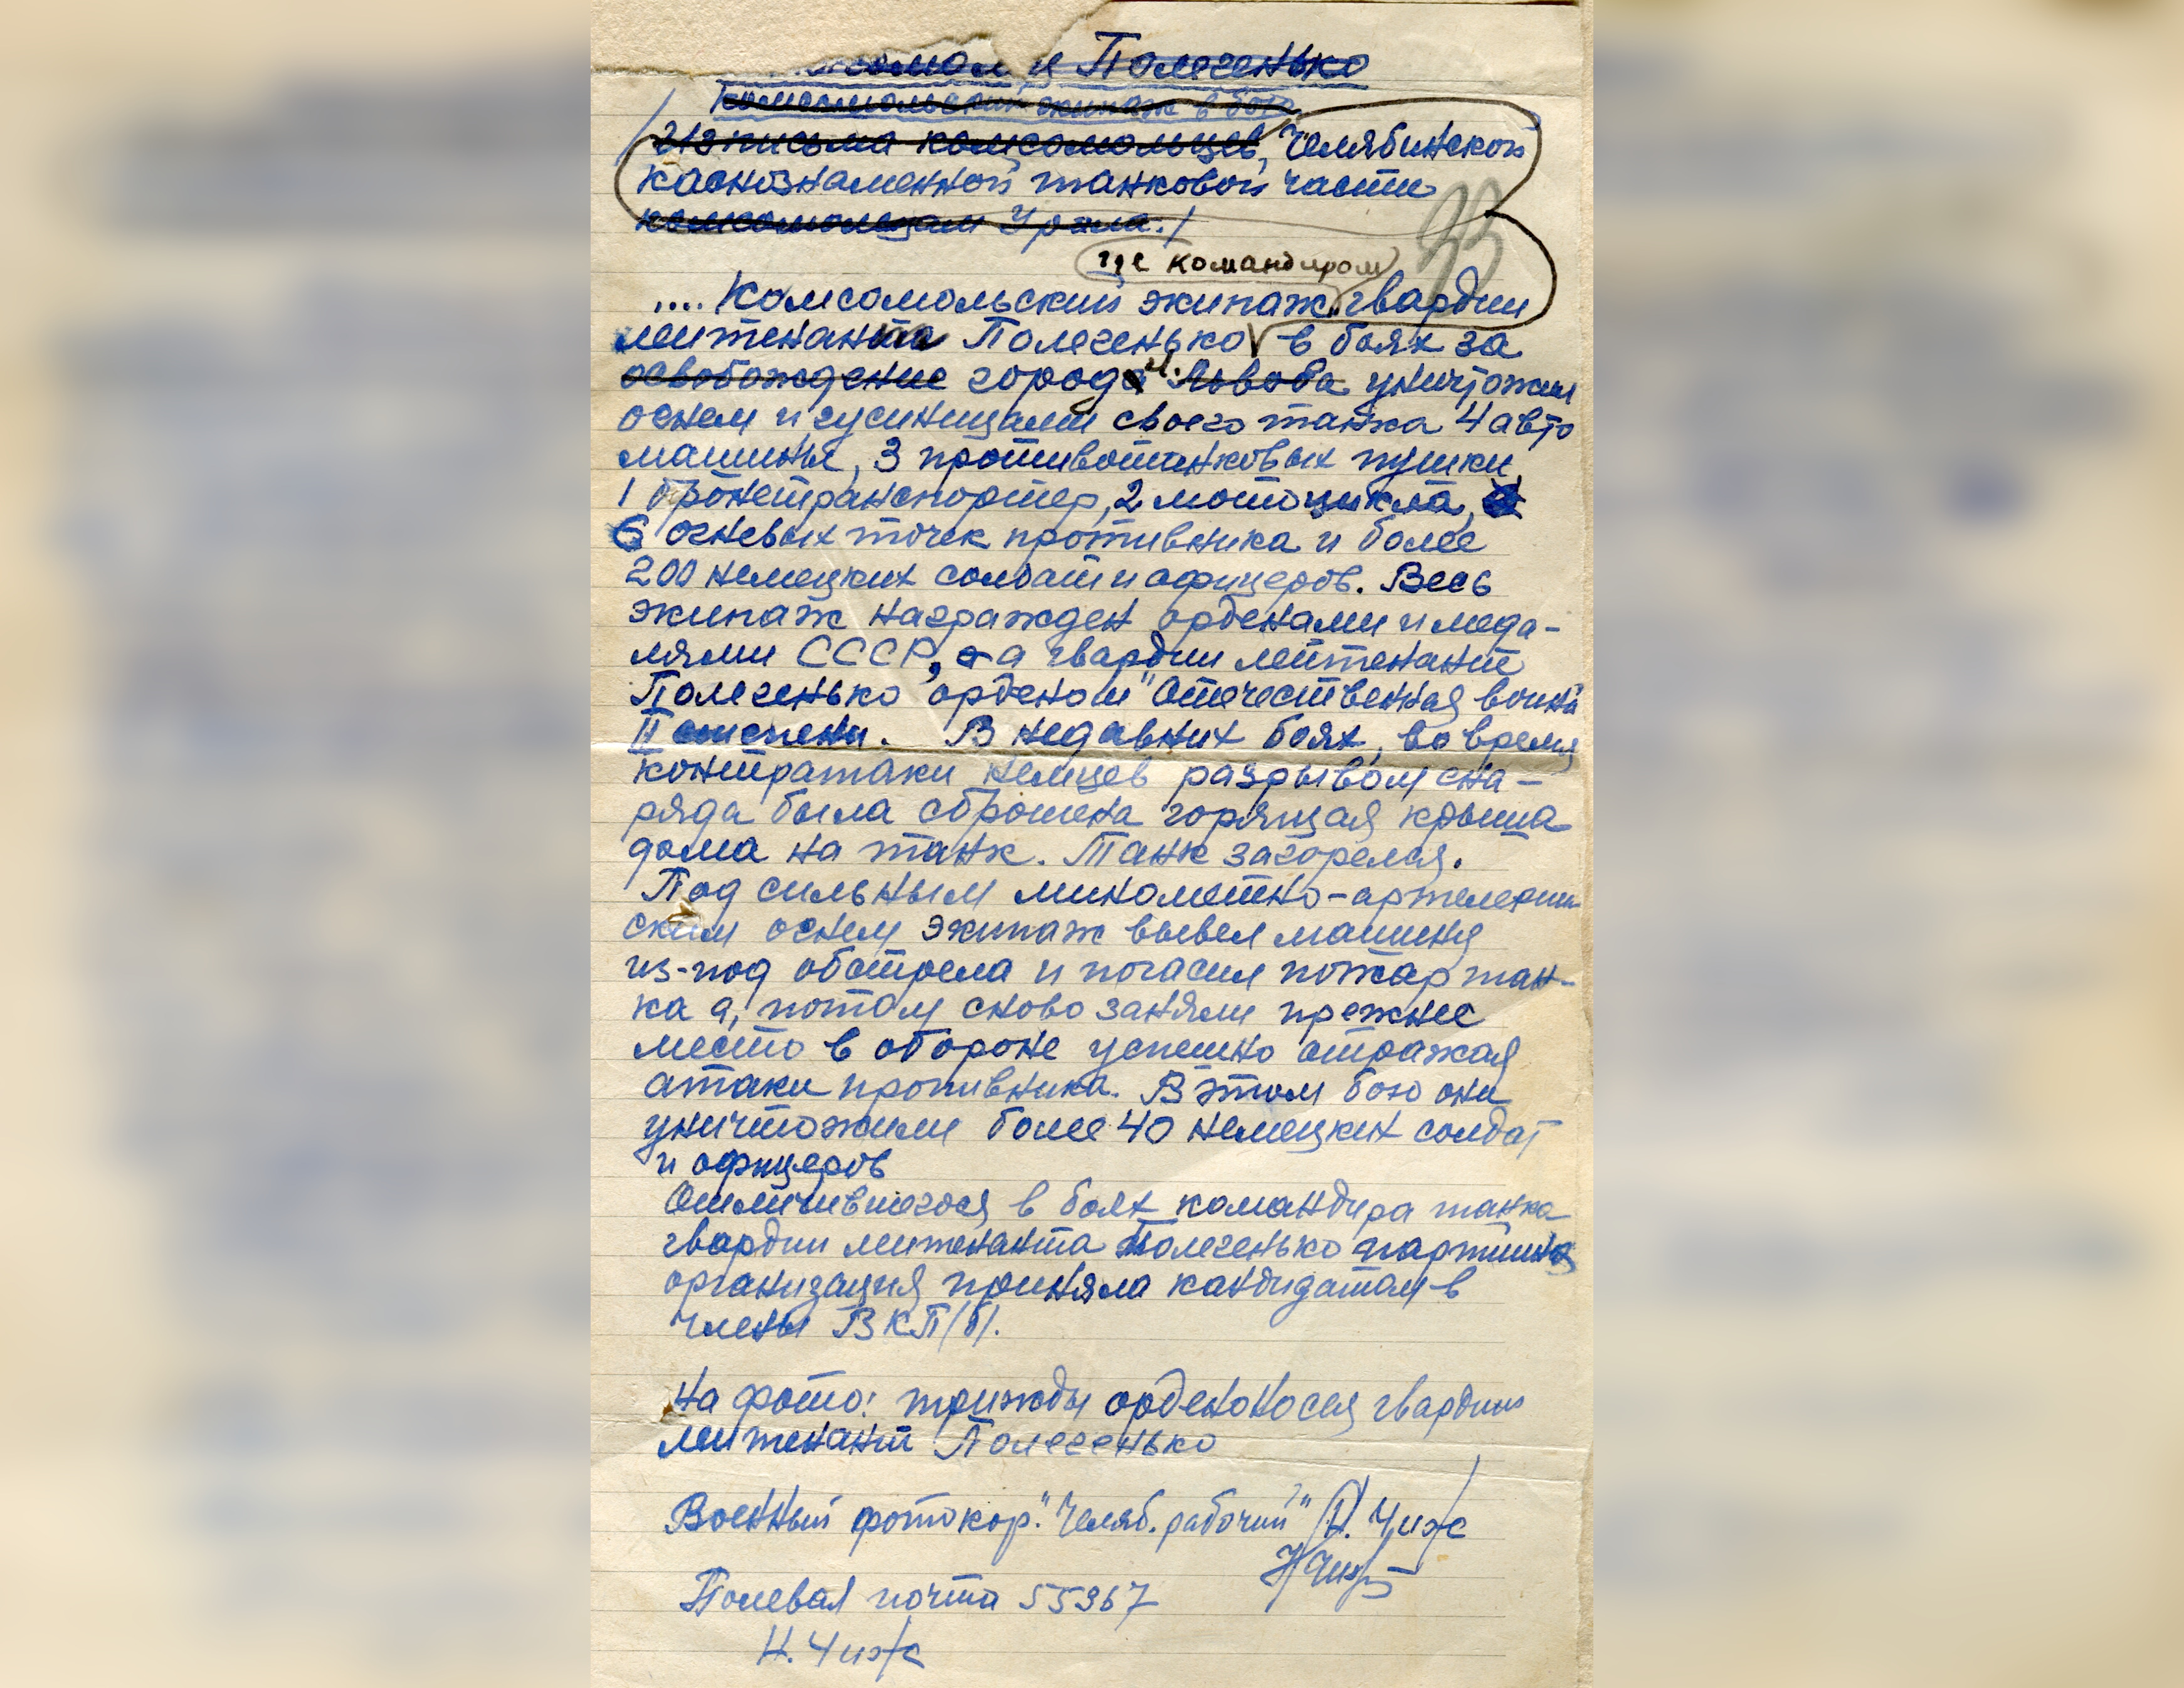 и Полегенько
Комсомольский экипаж в бою
/Из письма комсомольцев, Челябинской
каснознаменной танковой части
комсомольцам Урала./
33
где командиром
.... Комсомольский экипаж гвардии
лейтенанта Полегенько в боях за
освобождение города Львова уничтожил
огнем и гусиницами своего танка 4 авто
машины, 3 противотанковых пушки,
1 бронетранспортер, 2 мотоцикла,
6 огневых точек противника и более
200 немецких солдат и офицеров. Весь
экипаж награжден орденами и меда-
лями СССР, а гвардии лейтенант
Полегенько орденом "Отечественная война
II степени. В недавних боях, во время
контратаки немцев разрывом сна-
ряда была сброшена горящая крыша
дома на танк. Танк загорелся.
Под сильным минометно-артелерии
ским огнем экипаж вывел машину
из-под обстрела и погасил пожар тан-
ка а, потом сново заняли прежнее
место в обороне успешно отражая
атаки противника. В этом бою они
уничтожили более 40 немецких солдат
и офицеров
Отличившегося в боях командира танка
гвардии лейтенанта Полегенько партийная
организация приняла кандидатом в
члены ВКП/б/.
На фото: трижды орденоносец гвардии
лейтенант Полегенько
Военный фотокор. "Челяб. рабочий" /Н. Чиж/
НЧиж
Полевая почта 55367
Н. Чиж